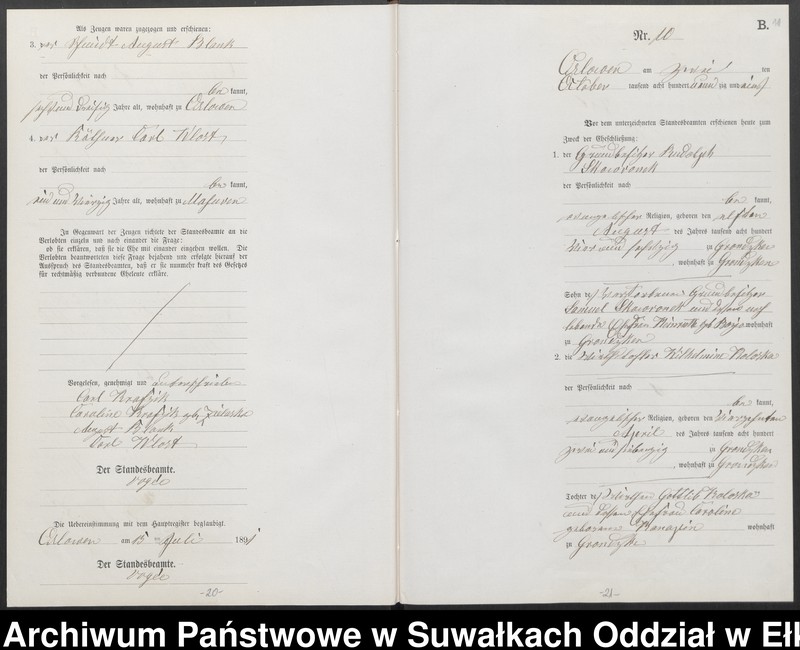 Als Zeugen waren zugezogen und erschienen:
3. der Schmidt August Blank
der Persönlichkeit nach
be kannt,
Jahre alt, wohnhaft zu Orlowen
4. der Käthner Carl Klost
der Persönlichkeit nach
be kannt,
und vierzig Jahre alt, wohnhaft zu Masuren
In Gegenwart der Zeugen richtete der Standesbeamte an die
Verlobten einzeln und nach einander die Frage:
ob sie erklären, daß sie die Ehe mit einander eingehen wollen. Die
Verlobten beantworteten diese Frage bejahend und erfolgte hierauf der
Ausspruch des Standesbeamten, daß er sie nunmehr kraft des Gesetzes
für rechtmäßig verbundene Eheleute erkläre.
Vorgelesen, genehmigt und unterschrieben
Carl Krafzik
Caroline Krafzik geb.
August Blank
Carl Klost
Der Standesbeamte.
Vogée
Die Uebereinstimmung mit dem Hauptregister beglaubigt.
Orlowen am 15 ten Juli 1891
Der Standesbeamte.
Vogée
-20-
B.
Nr. 10
Orlowen am zwei ten
October tausend acht hundert neun zig und eins
Vor dem unterzeichneten Standesbeamten erschienen heute zum
Zweck der Eheschließung:
1. der Grundbesitzer Rudolph
Skowronek
der Persönlichkeit nach
be kannt,
evangelischer Religion, geboren den elften
August des Jahres tausend acht hundert
vier und sechszig zu Grondzken
, wohnhaft zu Grondzken
Sohn des verstorbenen Grundbesitzer
Samuel Skowronek und dessen noch
lebende Ehefrau geb. wohnhaft
zu Grondzken
2. die Wirthstochter Wilhelmine Koloska
der Persönlichkeit nach
be kannt,
evangelischer Religion, geboren den vierzehnten
April des Jahres tausend acht hundert
zwei und siebenzig zu Grondzken
, wohnhaft zu Grondzken
Tochter des Wirthen Gottlieb Koloska
und dessen Ehefrau Caroline
geborene wohnhaft
zu Grondzken
-21-
Archiwum Państwowe w Suwałkach Oddział w Ełk